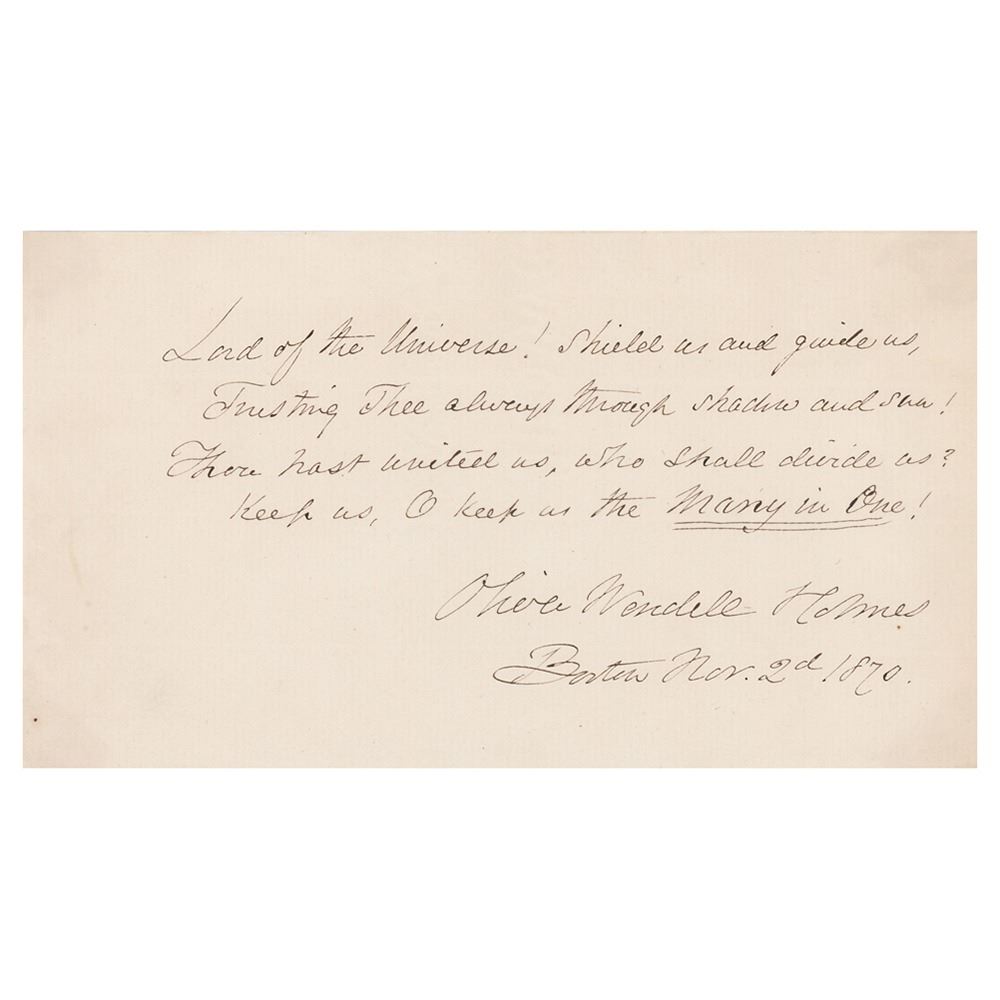 Lord of the Universe! Shield us and guide us,
Trusting Thee always through shadow and sun!
Thou hast united us, who shall divide us?
Keep us, O keep us the Many in One!
Oliver Wendell Holmes
Boston Nov. 2d 1870.